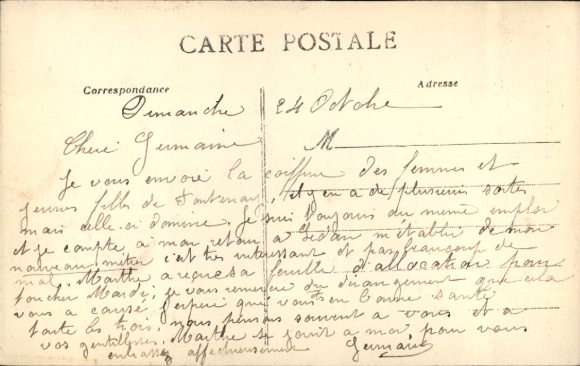 CARTE POSTALE
Correspondance
Adresse
Dimanche 24 Octobre
Chere Germaine
M
Je vous envoie la coiffure des femmes et
jeunes filles de Fontenay, et y en a de plusieurs sortes
mais celle-ci domine. Je suis toujours du meme emploi
et je compte a mon retour a Sedan m'etablir de mon
nouveau metier c'est tres interessant et pas beaucoup de
mal. Marthe a reçu sa feuille d'allocation pour
toucher Mardi; je vous remercie du derangement que cela
vous a cause j'espere que vous etes en bonne santé
toute les trois, nous pensons souvent a vous et a
vos gentillesses. Marthe se joint a moi pour vous
embrassez affectueusement Germain